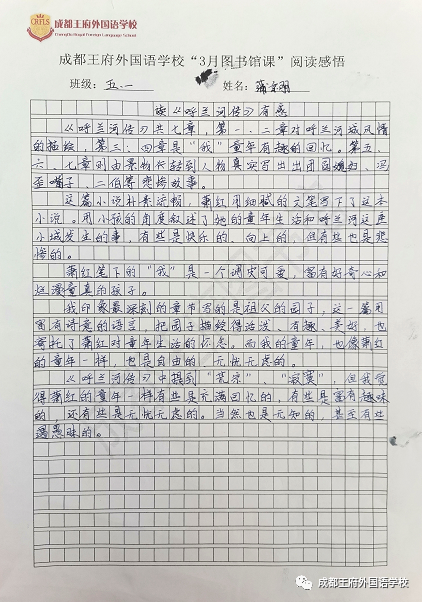 CRFLS
成都王府外国语学校
Chengdu Royal Foreign Language School
成都王府外国语学校“3月图书馆课”阅读感悟
班级：五.一 姓名：蒲
读《呼兰河传》有感
《呼兰河传》共七章，第一、二章对呼兰河城风情
的描绘，第三、四章是“我”童年有趣的回忆。第五、
六、七章则由景物代转到人物真实写出出团圆媳妇、冯
歪嘴子、二伯等悲惨故事。
这篇小说朴素流畅，萧红用细腻的文笔写下了这本
小说。用小孩的角度叙述了她的童年生活和呼兰河这座
小城发生的事，有些是快乐的、向上的，但有些也是悲
惨的。
萧红笔下的“我”是一个调皮可爱，富有好奇心和
烂漫童真的孩子。
我印象最深刻的章节写的是祖父的园子，这一篇用
富有诗意的语言，把园子描绘得活泼、有趣、美好，也
寄托了萧红对童年生活的怀念。而我的童年，也像萧红
的童年一样，也是自由的、无忧无虑的。
《呼兰河传》中提到“荒凉”、“寂寞”，但我觉
得萧红的童年一样有些是充满回忆的，有些是富有趣味
的 还有些是无忧无虑的。当然也是无知的，甚至有些
愚昧的。
成都王府外国语学校